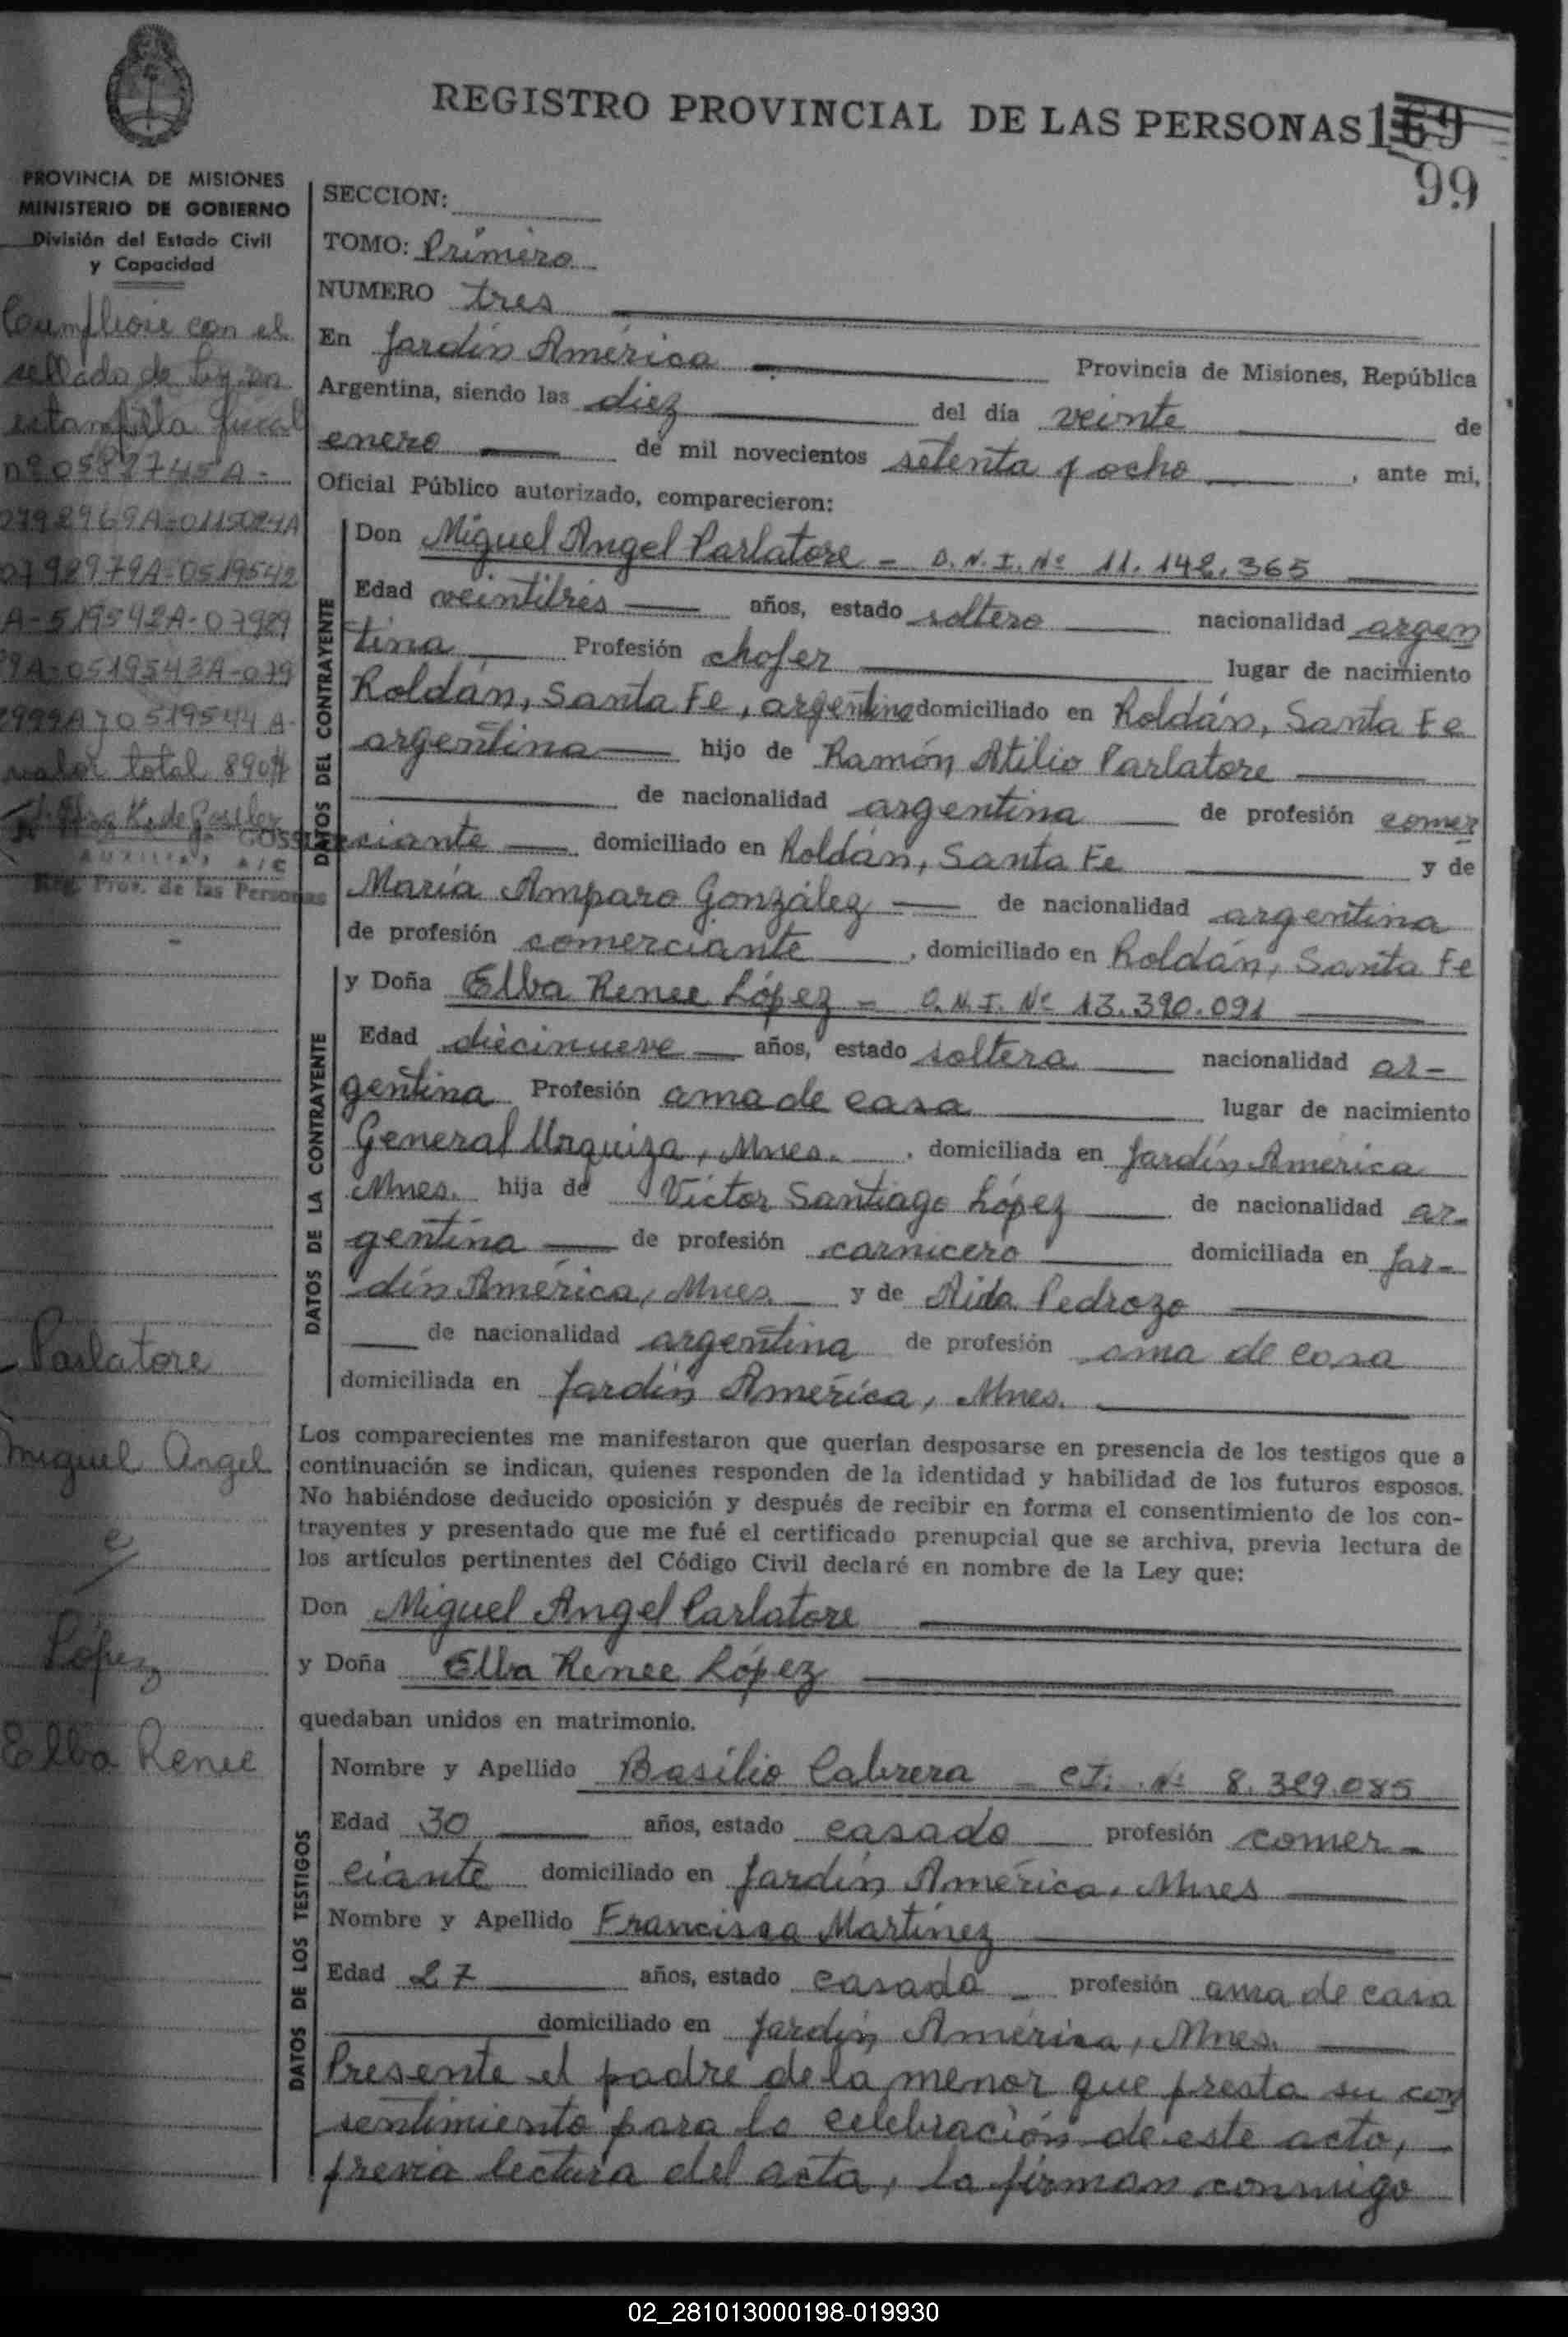 REGISTRO PROVINCIAL DE LAS PERSONAS 169
99
PROVINCIA DE MISIONES
MINISTERIO DE GOBIERNO
División del Estado Civil
y Capacidad
Cumpliose con el
sellado de ley en
estampilla fiscal
nº 0589745A-
0798969A-0115024A
0798979A-0519542
A-519542A-07989
9A-0519543A-079
8999A70519544A-
valor total 890$
K. de Gossler
GOSSLER
AUXILIAR A/C
Reg. Prov. de las Personas
Parlatore
Miguel Angel
e/
López
Elba Renee
SECCION:
TOMO: Primero
NUMERO tres
En Jardín América Provincia de Misiones, República
Argentina, siendo las diez del día veinte de
enero de mil novecientos setenta y ocho, ante mi,
Oficial Público autorizado, comparecieron:
DATOS DEL CONTRAYENTE
Don Miguel Angel Parlatore - D.N.I. Nº 11.142.365
Edad veintitrés años, estado soltero nacionalidad argen
tina Profesión chofer lugar de nacimiento
Roldán, Santa Fe, argentina domiciliado en Roldán, Santa Fe
argentina hijo de Ramón Atilio Parlatore
de nacionalidad argentina de profesión comer
ciante domiciliado en Roldán, Santa Fe y de
María Amparo González de nacionalidad argentina
de profesión comerciante, domiciliado en Roldán, Santa Fe
DATOS DE LA CONTRAYENTE
y Doña Elba Renee López - D.N.I. Nº 13.390.091
Edad diecinueve años, estado soltera nacionalidad ar-
gentina Profesión ama de casa lugar de nacimiento
General Urquiza, Mnes. , domiciliada en Jardín América
Mnes. hija de Víctor Santiago López de nacionalidad ar-
gentina de profesión carnicero domiciliada en Jar-
dín América, Mnes. y de Aida Pedrozo
de nacionalidad argentina de profesión ama de casa
domiciliada en Jardín América, Mnes.
Los comparecientes me manifestaron que querían desposarse en presencia de los testigos que a
continuación se indican, quienes responden de la identidad y habilidad de los futuros esposos.
No habiéndose deducido oposición y después de recibir en forma el consentimiento de los con-
trayentes y presentado que me fué el certificado prenupcial que se archiva, previa lectura de
los artículos pertinentes del Código Civil declaré en nombre de la Ley que:
Don Miguel Angel Parlatore
y Doña Elba Renee López
quedaban unidos en matrimonio.
DATOS DE LOS TESTIGOS
Nombre y Apellido Basilio Cabrera - C.I. Nº 8.329.085
Edad 30 años, estado casado profesión comer-
ciante domiciliado en Jardín América, Mnes
Nombre y Apellido Francisca Martínez
Edad 27 años, estado casada - profesión ama de casa
domiciliado en Jardín América, Mnes.
Presente el padre de la menor que presta su con
sentimiento para la celebración de este acto,
previa lectura del acta, la firman conmigo
02_281013000198-019930